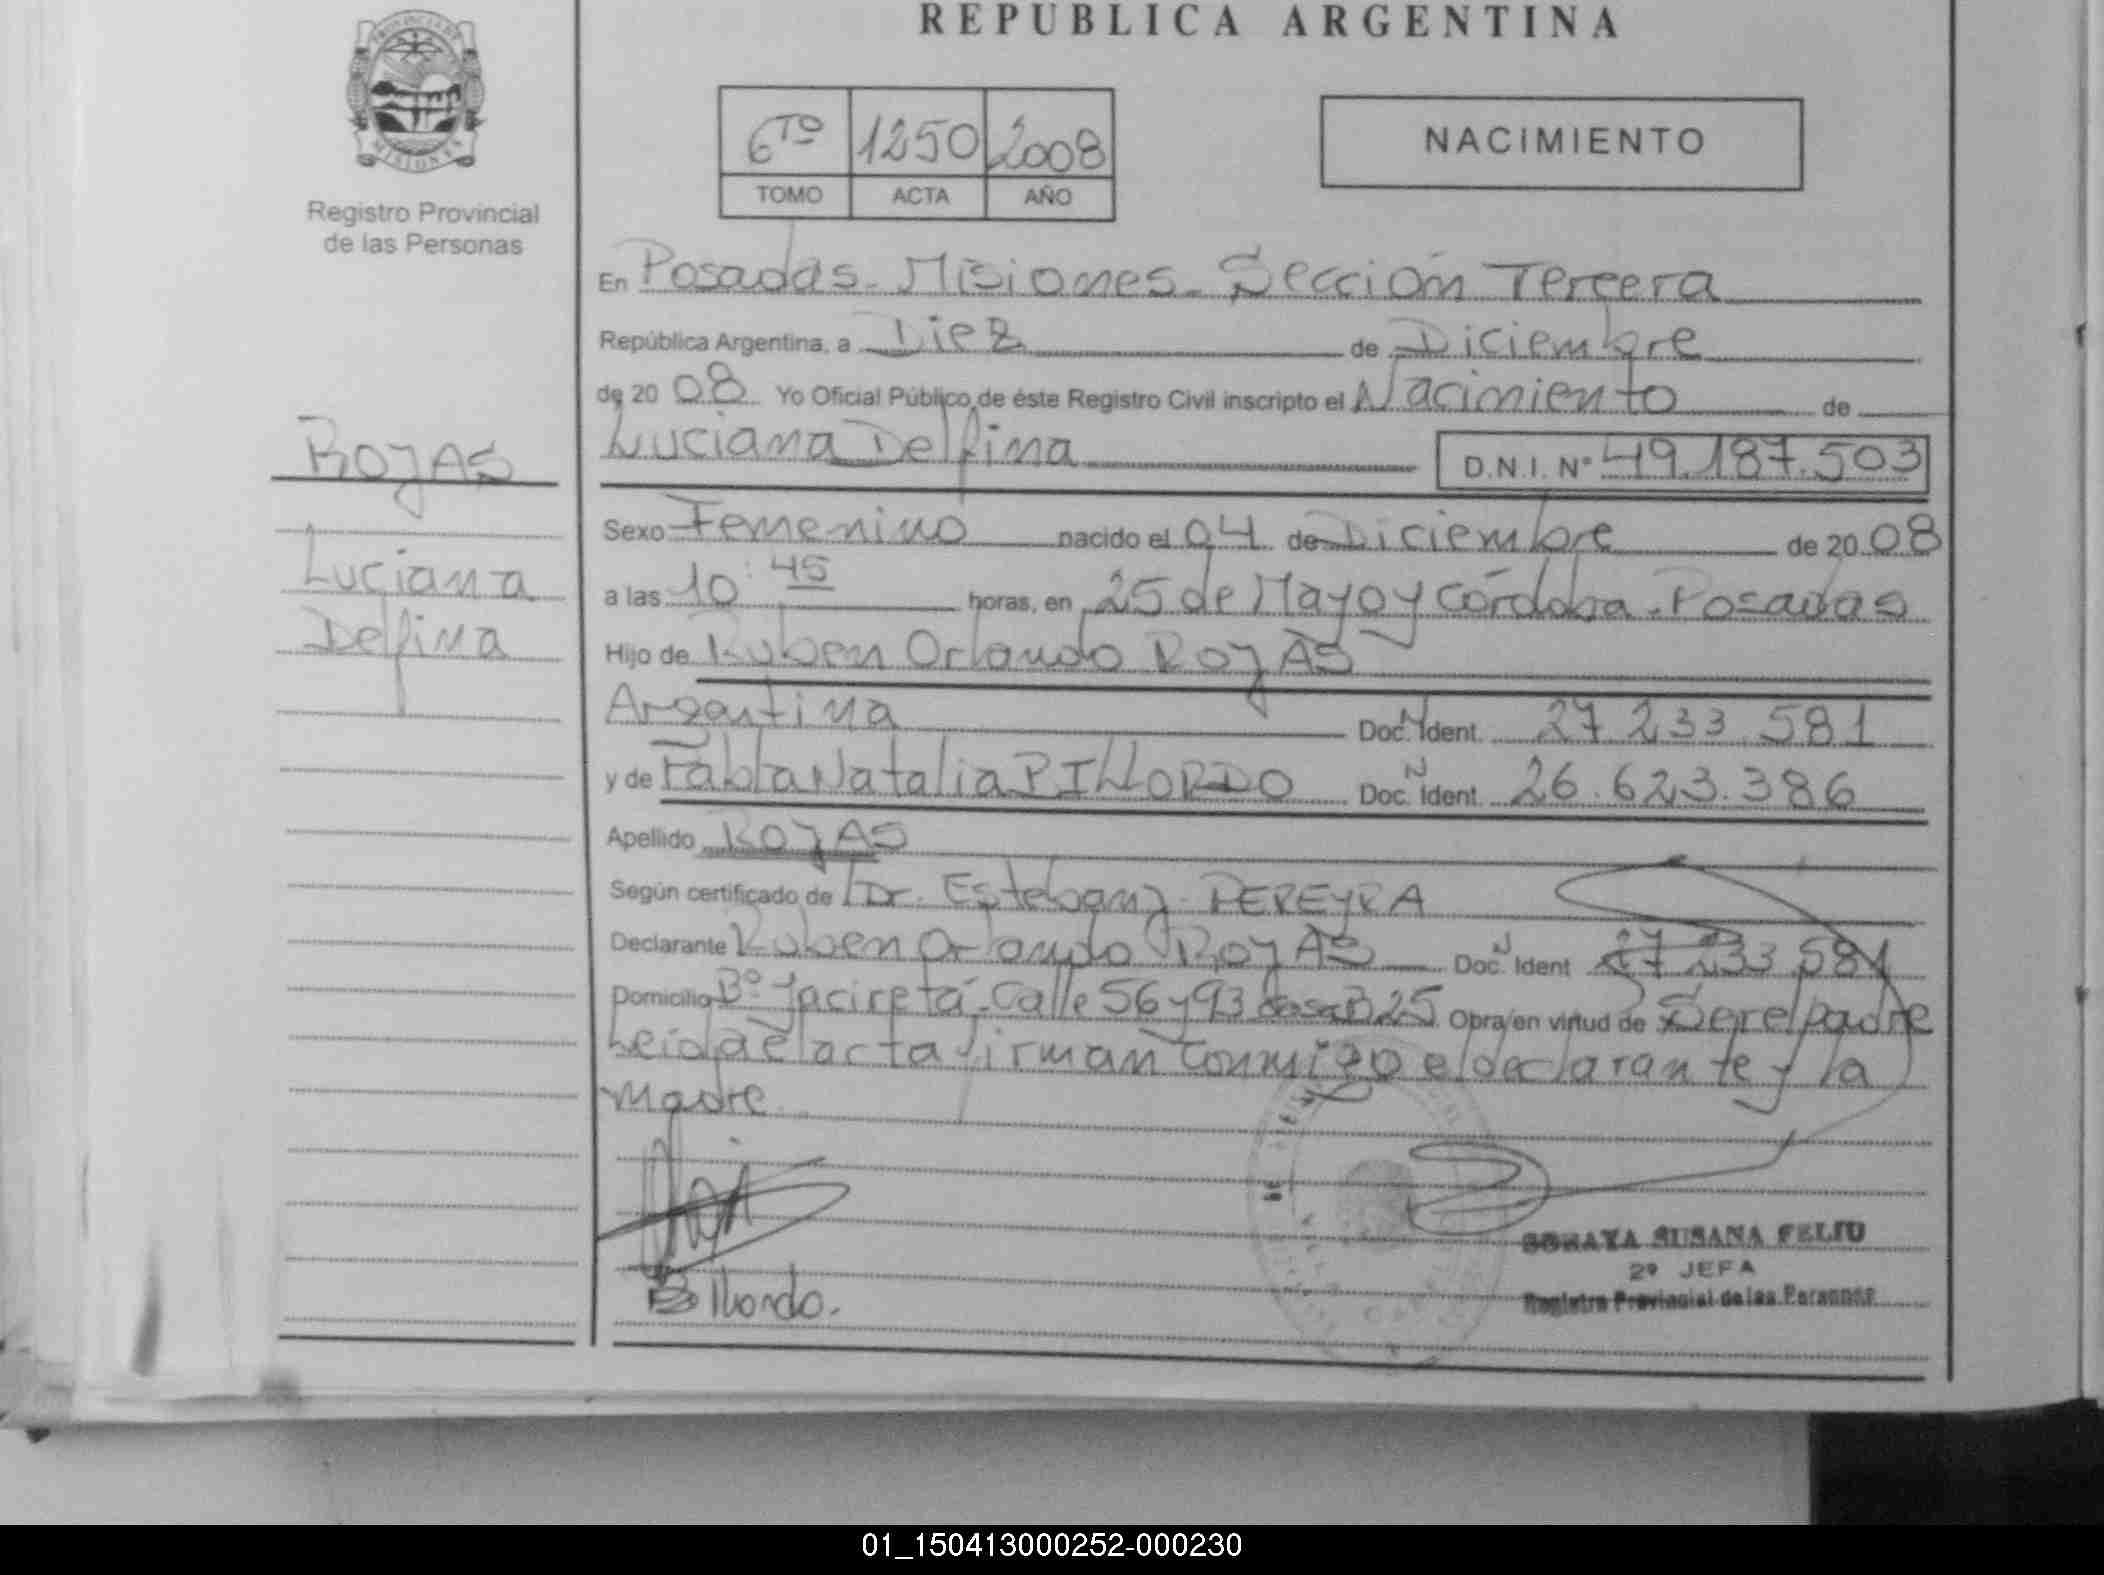 REPUBLICA ARGENTINA
PROVINCIA DE
MISIONES
Registro Provincial
de las Personas
6TO 1250 2008
TOMO ACTA AÑO
NACIMIENTO
En Posadas - Misiones - Sección Tercera
República Argentina, a Diez de Diciembre
de 2008 Yo Oficial Público de éste Registro Civil inscripto el Nacimiento de
Luciana Delfina D.N.I. Nº 49.187.503
ROJAS
Luciana
Delfina
Sexo Femenino nacido el 04 de Diciembre de 2008
a las 10:45 horas, en 25 de Mayo y Córdoba - Posadas
Hijo de Ruben Orlando ROJAS
Argentina Doc. N Ident. 27.233.581
y de Natalia Doc. N Ident. 26.623.386
Apellido ROJAS
Según certificado de Dr. Esteban PEREYRA
Declarante Ruben Orlando ROJAS Doc. N Ident 27 233 581
Domicilio Bº Yaciretá - Calle 56 y 93 casa 25 Obra en virtud de Ser el padre
Leida el acta firman conmigo el declarante y la
madre
SORAYA SUSANA FELIU
2º JEFA
Registro Provincial de las Personas
01_150413000252-000230